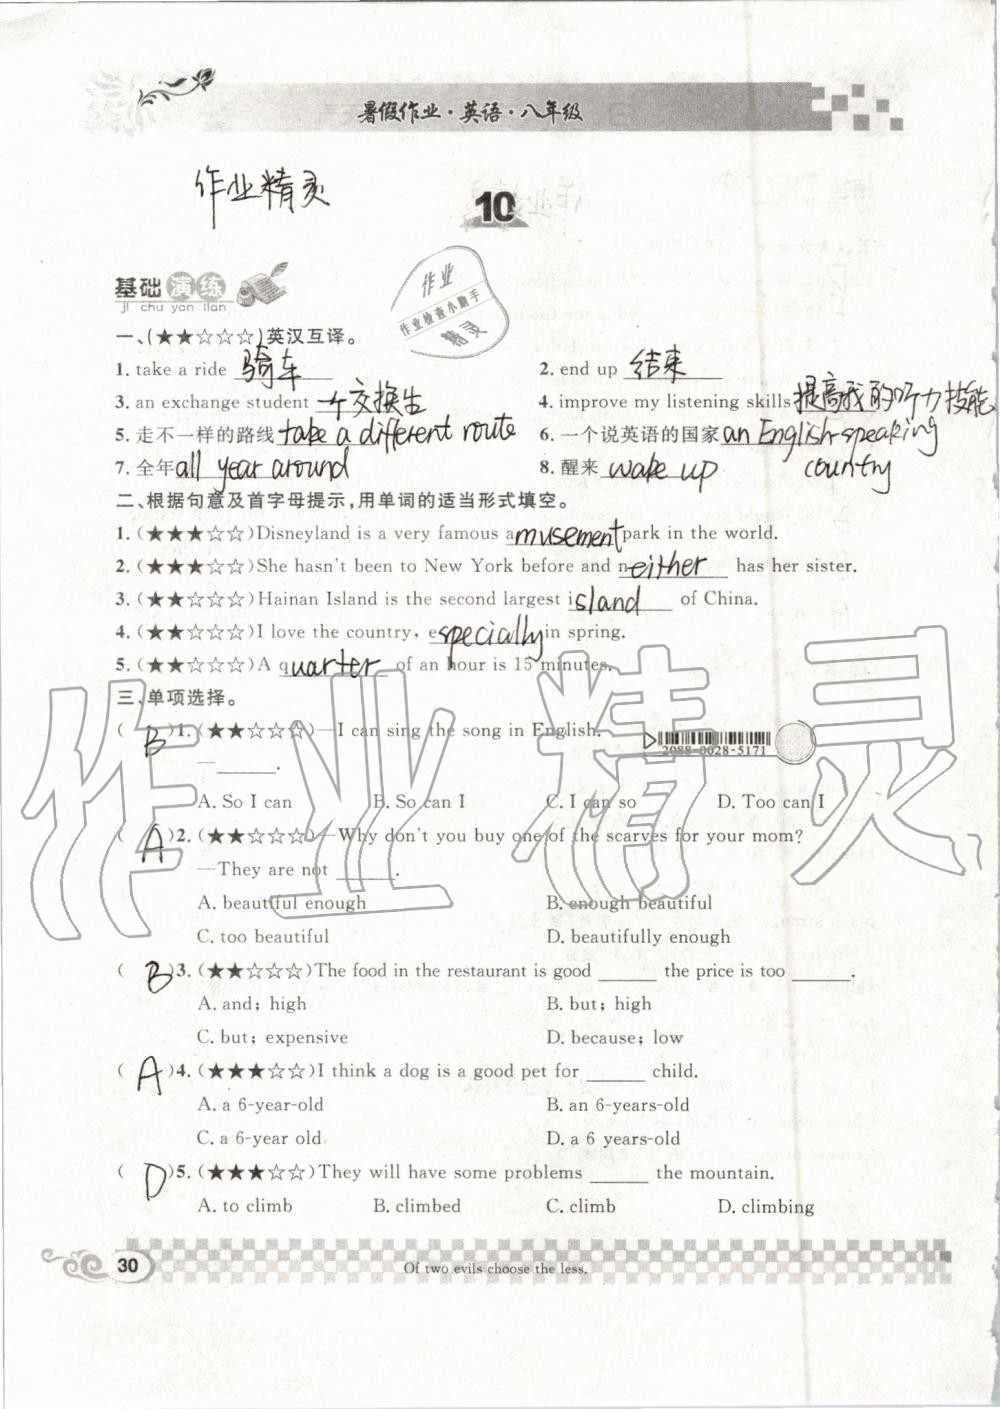 暑假作业·英语·八年级
作业精灵
10
作业
作业检查小助手
精灵
基础演练
ji chu yan lian
一、(★★☆☆☆)英汉互译。
1. take a ride 骑车 2. end up 结束
3. an exchange student 一个交换生 4. improve my listening skills 提高我的听力技能
5. 走不一样的路线 take a different route 6. 一个说英语的国家 an English-speaking country
7. 全年 all year around 8. 醒来 wake up
二、根据句意及首字母提示,用单词的适当形式填空。
1. (★★★☆☆)Disneyland is a very famous amusement park in the world.
2. (★★★☆☆)She hasn't been to New York before and neither has her sister.
3. (★★☆☆☆)Hainan Island is the second largest island of China.
4. (★★☆☆☆)I love the country, especially in spring.
5. (★★☆☆☆)A quarter of an hour is 15 minutes.
三、单项选择。
( B )1. (★★☆☆☆)—I can sing the song in English.
—______.
2088-0028-5171
A. So I can B. So can I C. I can so D. Too can I
( A )2. (★★☆☆☆)—Why don't you buy one of the scarves for your mom?
—They are not ______.
A. beautiful enough B. enough beautiful
C. too beautiful D. beautifully enough
( B )3. (★★☆☆☆)The food in the restaurant is good ______ the price is too ______.
A. and; high B. but; high
C. but; expensive D. because; low
( A )4. (★★★☆☆)I think a dog is a good pet for ______ child.
A. a 6-year-old B. an 6-years-old
C. a 6-year old D. a 6 years-old
( D )5. (★★★☆☆)They will have some problems ______ the mountain.
A. to climb B. climbed C. climb D. climbing
作业精灵
30
Of two evils choose the less.